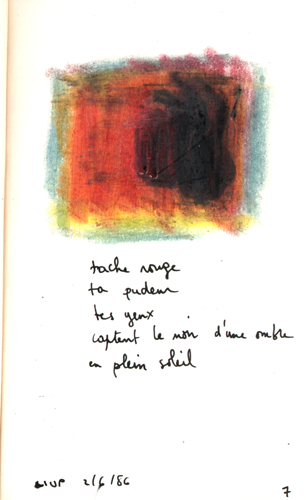 tache rouge
ta pudeur
tes yeux
captent le noir d'une ombre
en plein soleil
2/6/86
7